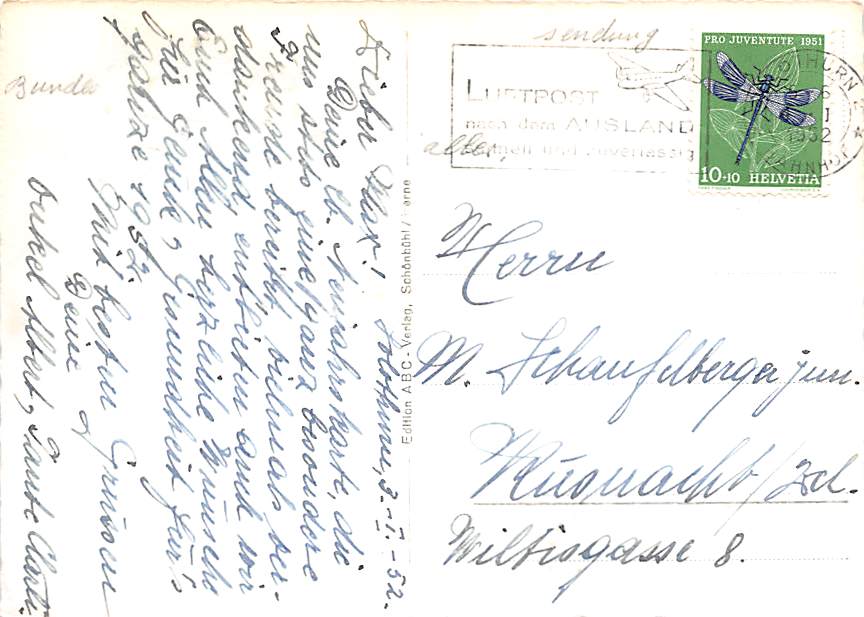 Solothurn, 3. I. 52.
Lieber Max!
Deine lb. Neujahrskarte, die
uns stets eine ganz besondere
Freude bereitet, vielmals ver-
dankend, entbieten auch wir
Euch Allen herzliche Wünsche
für Glück, Gesundheit für's
ganze 1952.
Mit besten Grüssen
Deine
Onkel Albert, Tante Clarli
Bunde
sendung
alber,
Edition ABC-Verlag, Schönbühl/Berne
LUFTPOST
nach dem AUSLAND
schnell und zuverlässig
PRO JUVENTUTE 1951
10+10 HELVETIA
1952
BAHNHOF
Herrn
M. Schaufelberger jun.
Küsnacht/Zch.
Wiltisgasse 8.